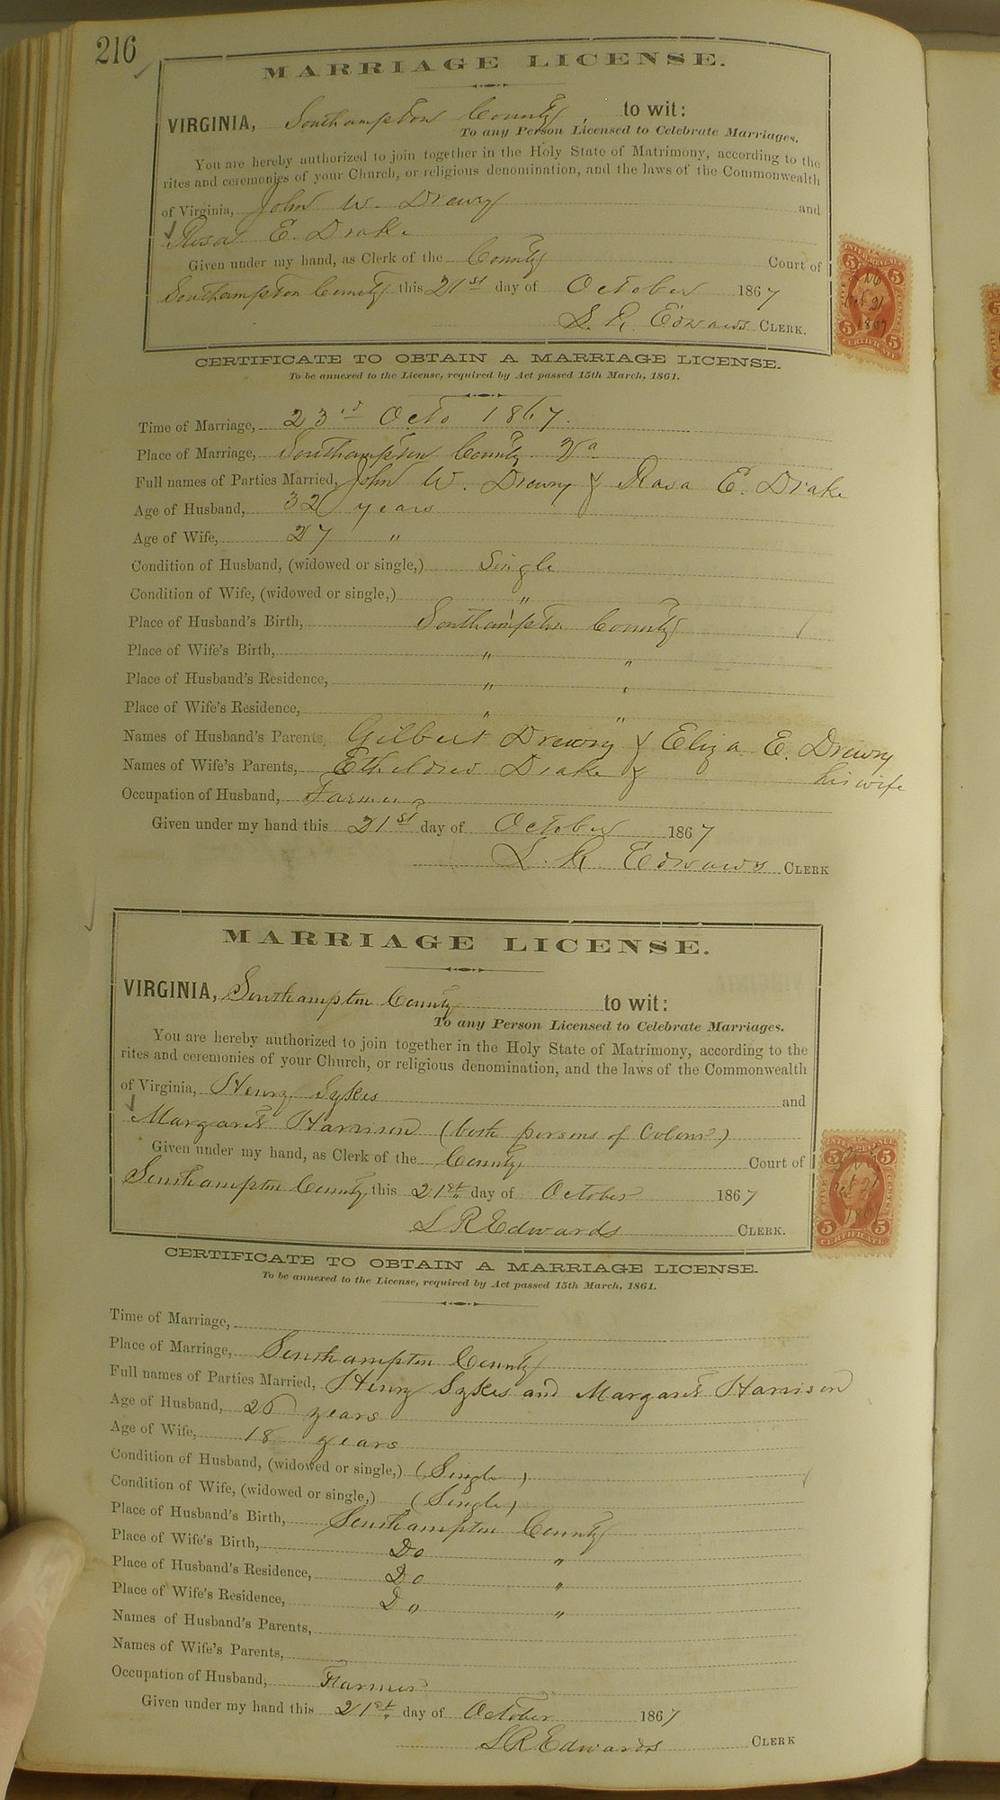 216
MARRIAGE LICENSE.
VIRGINIA, Southampton County, to wit:
To any Person Licensed to Celebrate Marriages.
You are hereby authorized to join together in the Holy State of Matrimony, according to the
rites and ceremonies of your Church, or religious denomination, and the laws of the Commonwealth
of Virginia, John W. Drewry and
Rosa E. Drake
Given under my hand, as Clerk of the County Court of
Southampton County this 21st day of October 1867
L. R. Edwards CLERK.
CERTIFICATE TO OBTAIN A MARRIAGE LICENSE.
To be annexed to the License, required by Act passed 15th March, 1861.
Time of Marriage, 23rd Octo 1867.
Place of Marriage, Southampton County Va
Full names of Parties Married, John W. Drewry & Rosa E. Drake
Age of Husband, 32 years
Age of Wife, 27 "
Condition of Husband, (widowed or single,) Single
Condition of Wife, (widowed or single,) "
Place of Husband's Birth, Southampton County
Place of Wife's Birth, " "
Place of Husband's Residence, " "
Place of Wife's Residence, " "
Names of Husband's Parents, Gilbert Drewry & Eliza E. Drewry
his wife
Names of Wife's Parents, Etheldred Drake &
Occupation of Husband, Farmer
Given under my hand this 21st day of October 1867
L. R. Edwards CLERK
MARRIAGE LICENSE.
VIRGINIA, Southampton County to wit:
To any Person Licensed to Celebrate Marriages.
You are hereby authorized to join together in the Holy State of Matrimony, according to the
rites and ceremonies of your Church, or religious denomination, and the laws of the Commonwealth
of Virginia, Henry Sykes and
Margaret Harrison (both persons of Colour)
Given under my hand, as Clerk of the County Court of
Southampton County this 21st day of October 1867
L R Edwards CLERK.
CERTIFICATE TO OBTAIN A MARRIAGE LICENSE.
To be annexed to the License, required by Act passed 15th March, 1861.
Time of Marriage,
Place of Marriage, Southampton County
Full names of Parties Married, Henry Sykes and Margaret Harrison
Age of Husband, 26 years
Age of Wife, 18 years
Condition of Husband, (widowed or single,) (Single)
Condition of Wife, (widowed or single,) (Single)
Place of Husband's Birth, Southampton County
Place of Wife's Birth, Do "
Place of Husband's Residence, Do "
Place of Wife's Residence, Do "
Names of Husband's Parents,
Names of Wife's Parents,
Occupation of Husband, Farmer
Given under my hand this 21st day of October 1867
L R Edwards CLERK